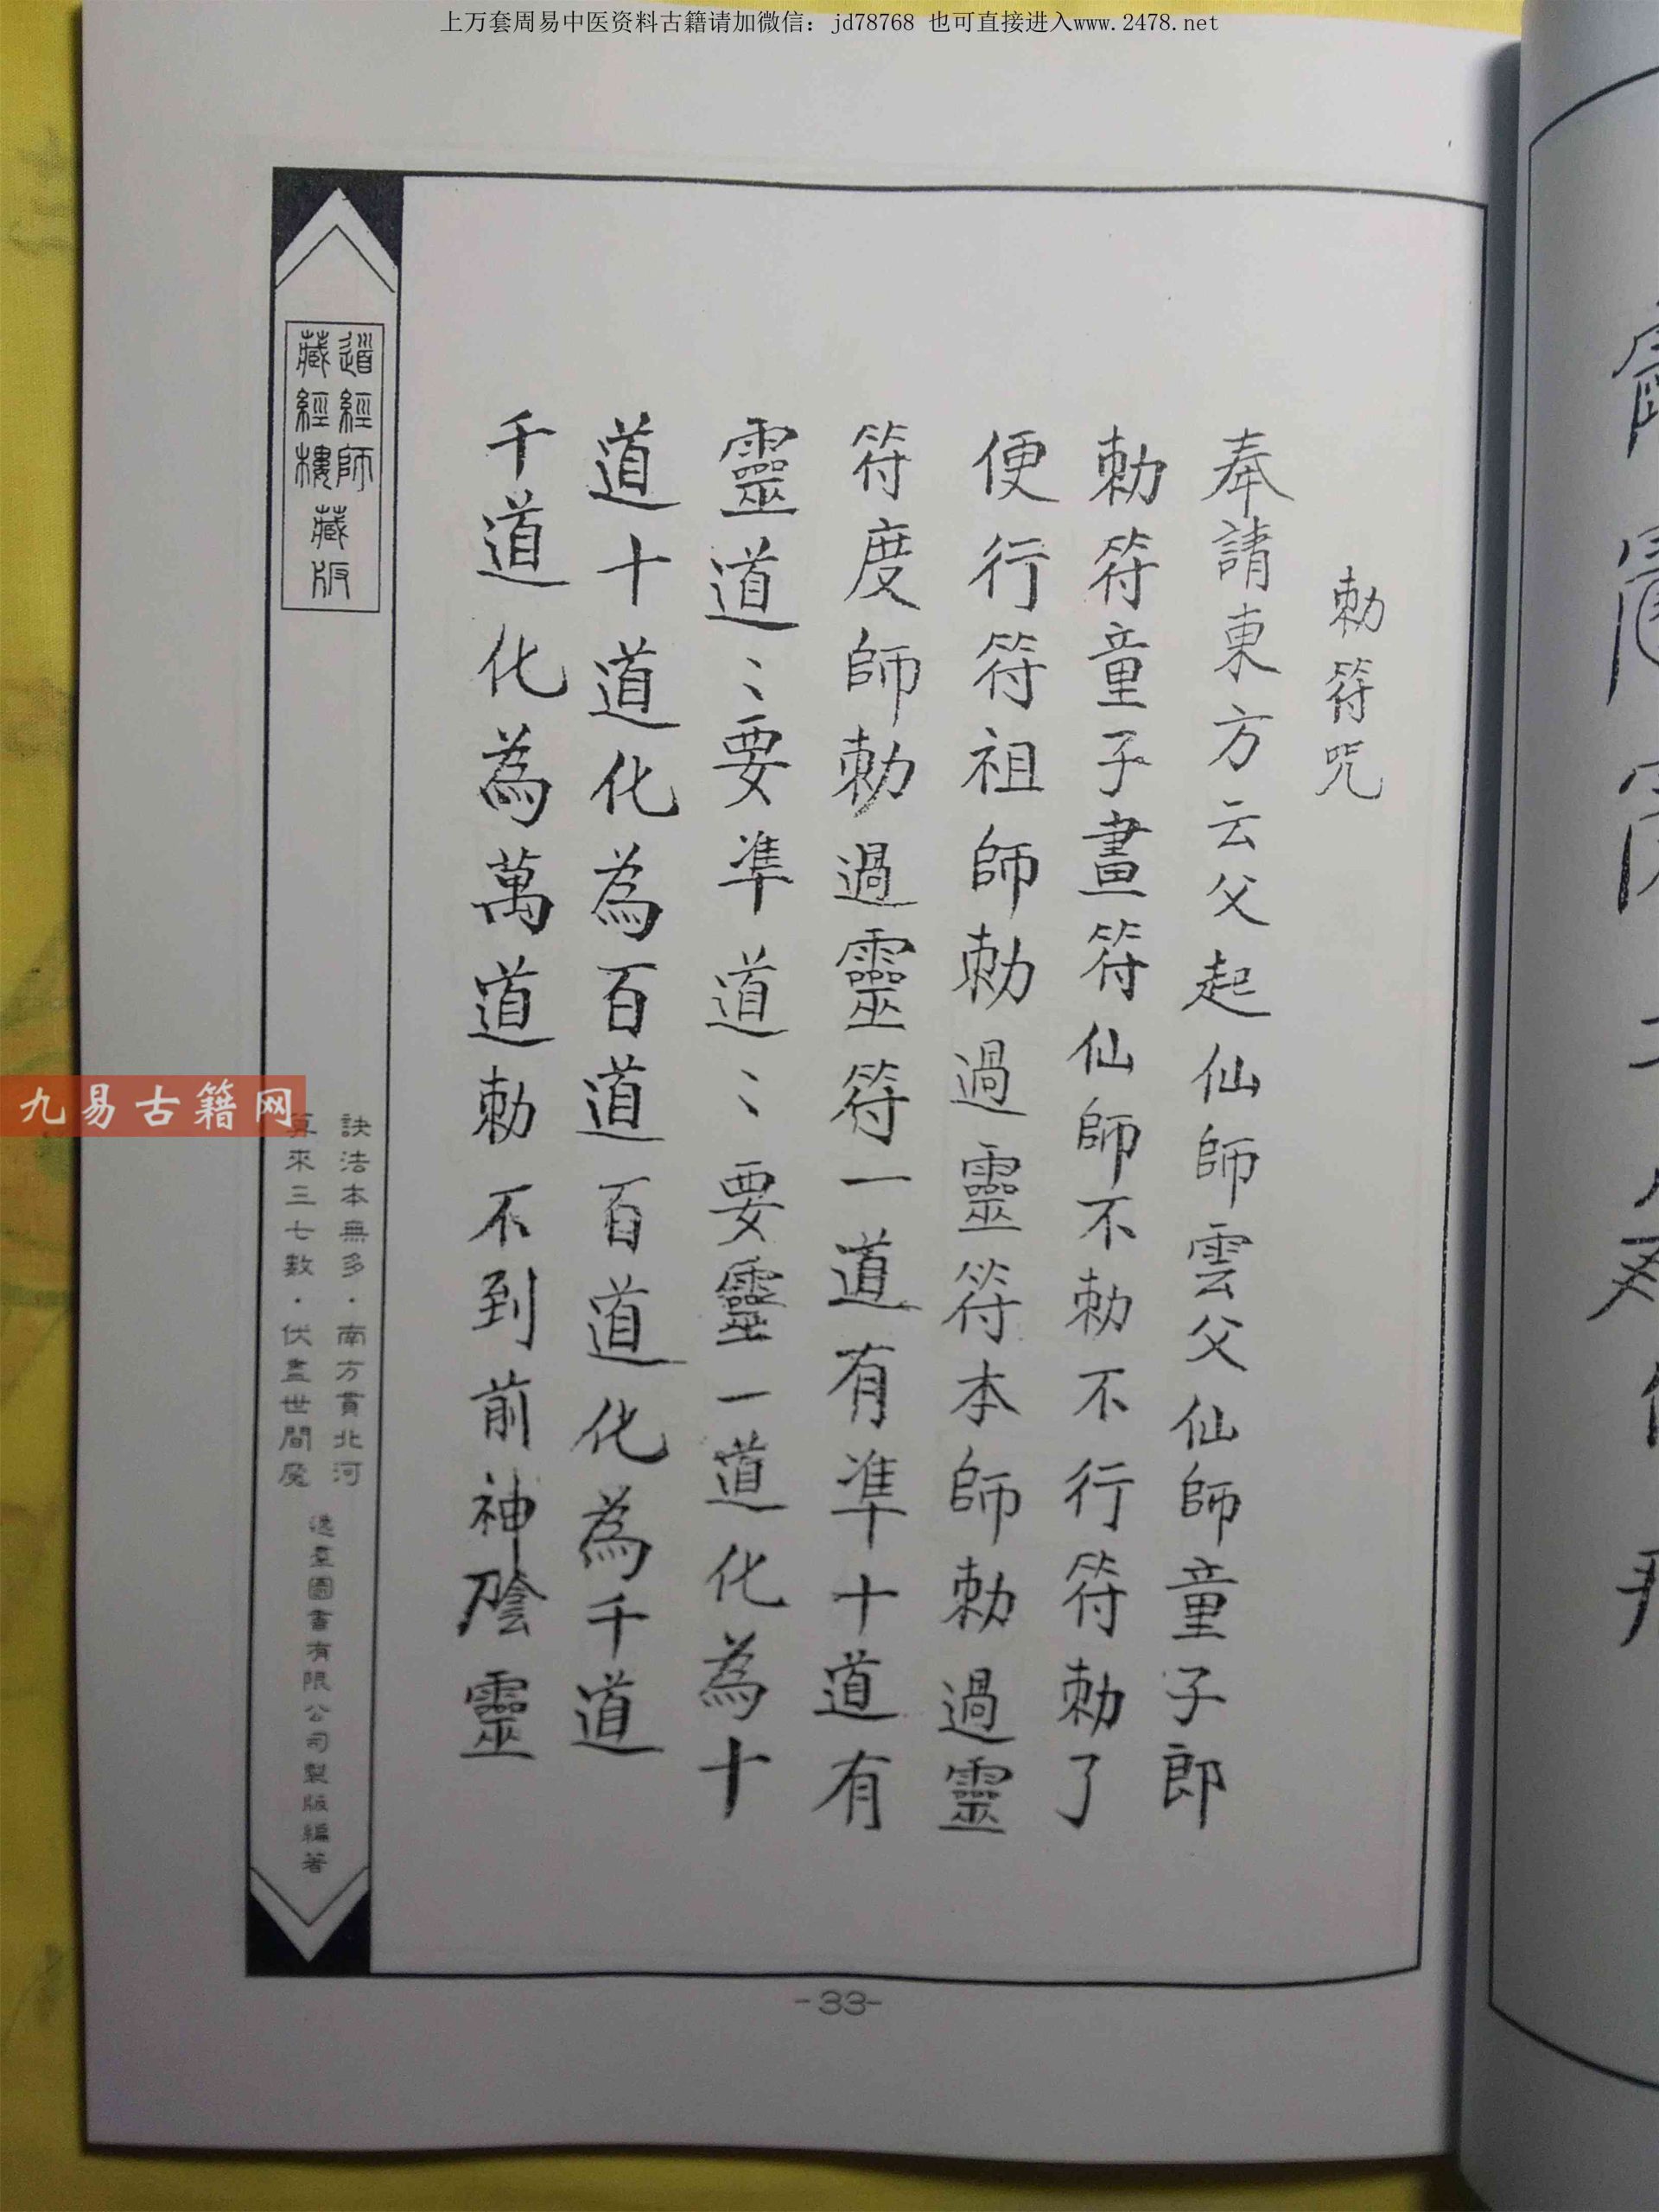 上万套周易中医资料古籍请加微信：jd78768 也可直接进入www.2478.net
勅符咒
奉請東方云父起仙師雲父仙師童子郎
勅符童子畫符仙師不勅不行符勅了
便行符祖師勅過靈符本師勅過靈
符度師勅過靈符一道有準十道有
靈道〻要準道〻要靈一道化為十
道十道化為百道百道化為千道
千道化為萬道勅不到前神 靈
道經師
藏經樓
藏版
訣法本無多．南方貫北河
算來三七數．伏盡世間魔
逸羣圖書有限公司製版編著
九易古籍网
-33-